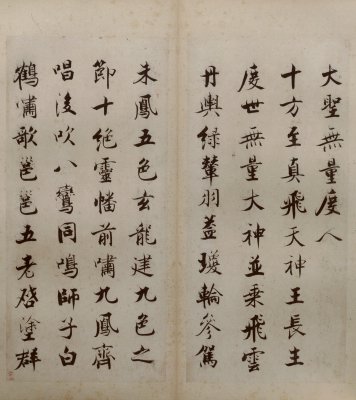 大聖無量度人
十方至真飛天神王長生
度世無量大神並乘飛雲
丹輿綠輦羽蓋瓊輪參駕
朱鳳五色玄龍建九色之
節十絕靈幡前嘯九鳳齊
唱後吹八鸞同鳴師子白
鶴嘯歌邕邕五老啓塗群